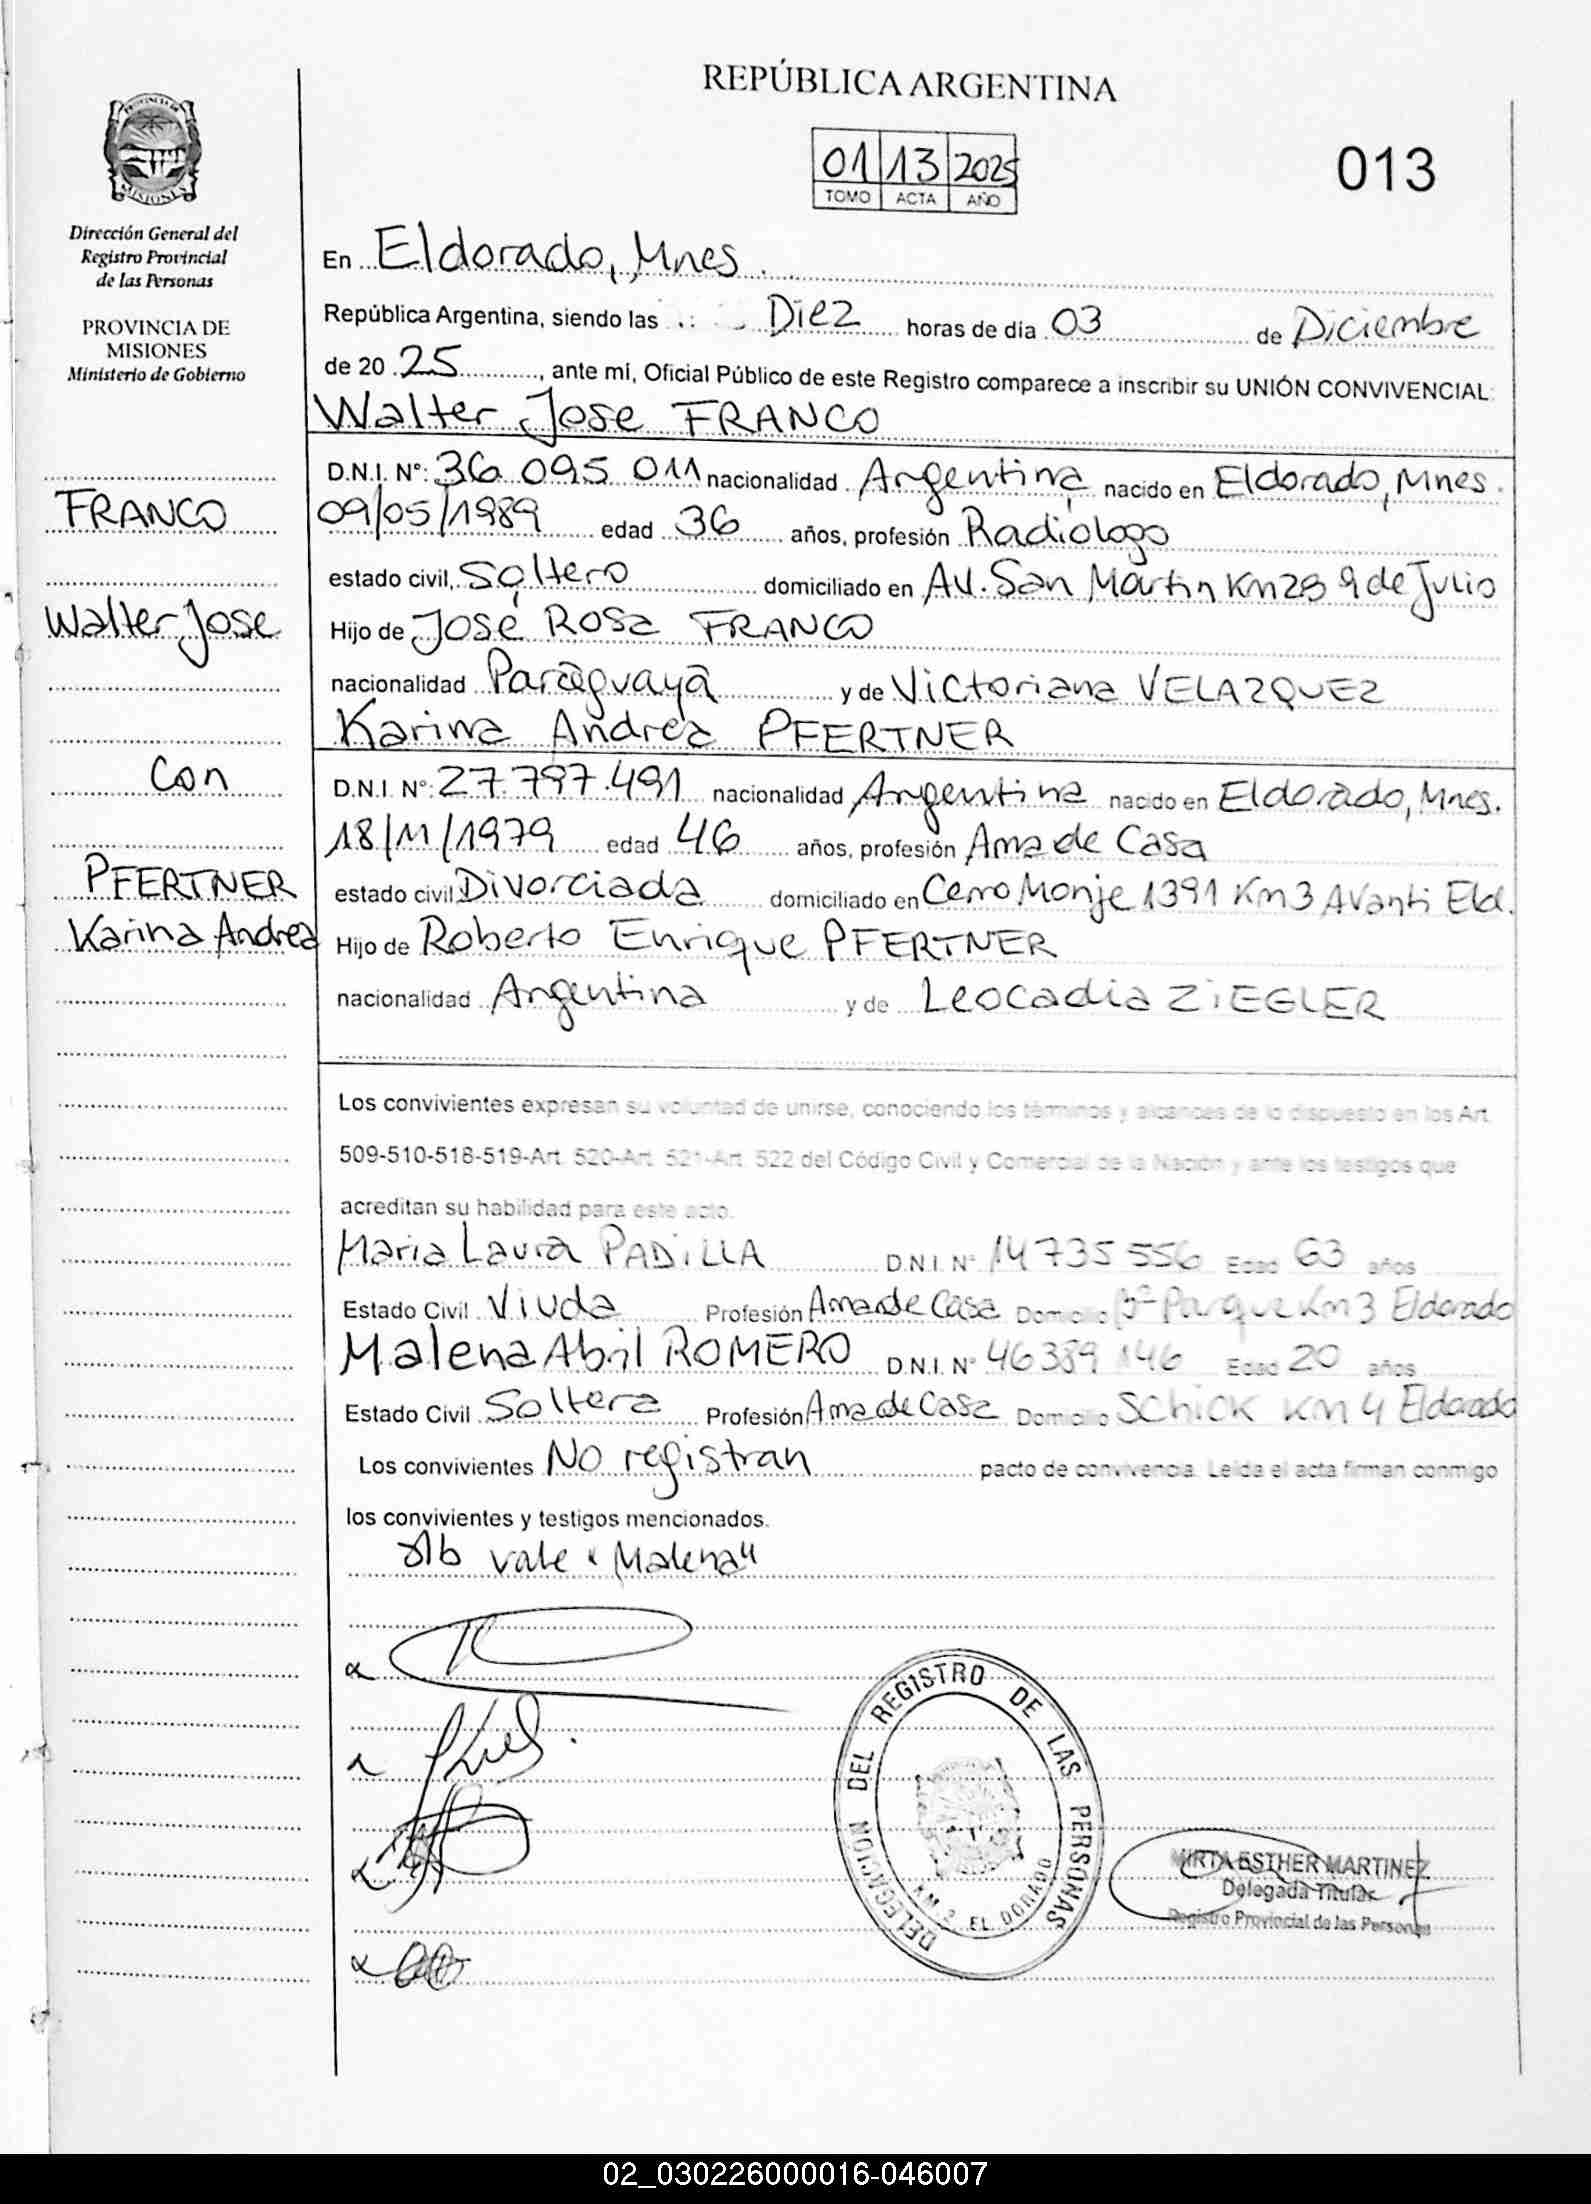 REPÚBLICA ARGENTINA
01 13 2025
TOMO ACTA AÑO
013
PROVINCIA DE MISIONES
Dirección General del
Registro Provincial
de las Personas
PROVINCIA DE
MISIONES
Ministerio de Gobierno
FRANCO
Walter Jose
Con
PFERTNER
Karina Andrea
En Eldorado, Mnes.
República Argentina, siendo las Diez horas de día 03 de Diciembre
de 20 25, ante mi, Oficial Público de este Registro comparece a inscribir su UNIÓN CONVIVENCIAL:
Walter Jose FRANCO
D.N.I. Nº: 36.095.011 nacionalidad Argentina nacido en Eldorado, Mnes.
09/05/1989 edad 36 años, profesión Radiologo
estado civil, Soltero domiciliado en Av. San Martin Km28 9 de Julio
Hijo de José Rosa FRANCO
nacionalidad Paraguaya y de Victoriana VELAZQUEZ
Karina Andrea PFERTNER
D.N.I. Nº: 27.797.491 nacionalidad Argentina nacido en Eldorado, Mnes.
18/11/1979 edad 46 años, profesión Ama de Casa
estado civil Divorciada domiciliado en Cerro Monje 1391 Km3 Avanti Eld.
Hijo de Roberto Enrique PFERTNER
nacionalidad Argentina y de Leocadia ZiEGLER
Los convivientes expresan su voluntad de unirse, conociendo los términos y alcances de lo dispuesto en los Art.
509-510-518-519-Art. 520-Art. 521-Art. 522 del Código Civil y Comercial de la Nación y ante los testigos que
acreditan su habilidad para este acto.
Maria Laura PADiLLA D.N.I. Nº 14 735 556 Edad 63 años
Estado Civil Viuda Profesión Ama de Casa Domicilio Parque Km3 Eldorado
Malena Abril ROMERO D.N.I. Nº 46 389 146 Edad 20 años
Estado Civil Soltera Profesión Ama de Casa Domicilio SChick Km 4 Eldorado
Los convivientes No registran pacto de convivencia. Leída el acta firman conmigo
los convivientes y testigos mencionados.
vale "Malena"
DELEGACION DEL REGISTRO DE LAS PERSONAS
KM. 2 EL DORADO
MIRTA ESTHER MARTINEZ
Delegada Titular
Registro Provincial de las Personas
02_030226000016-046007